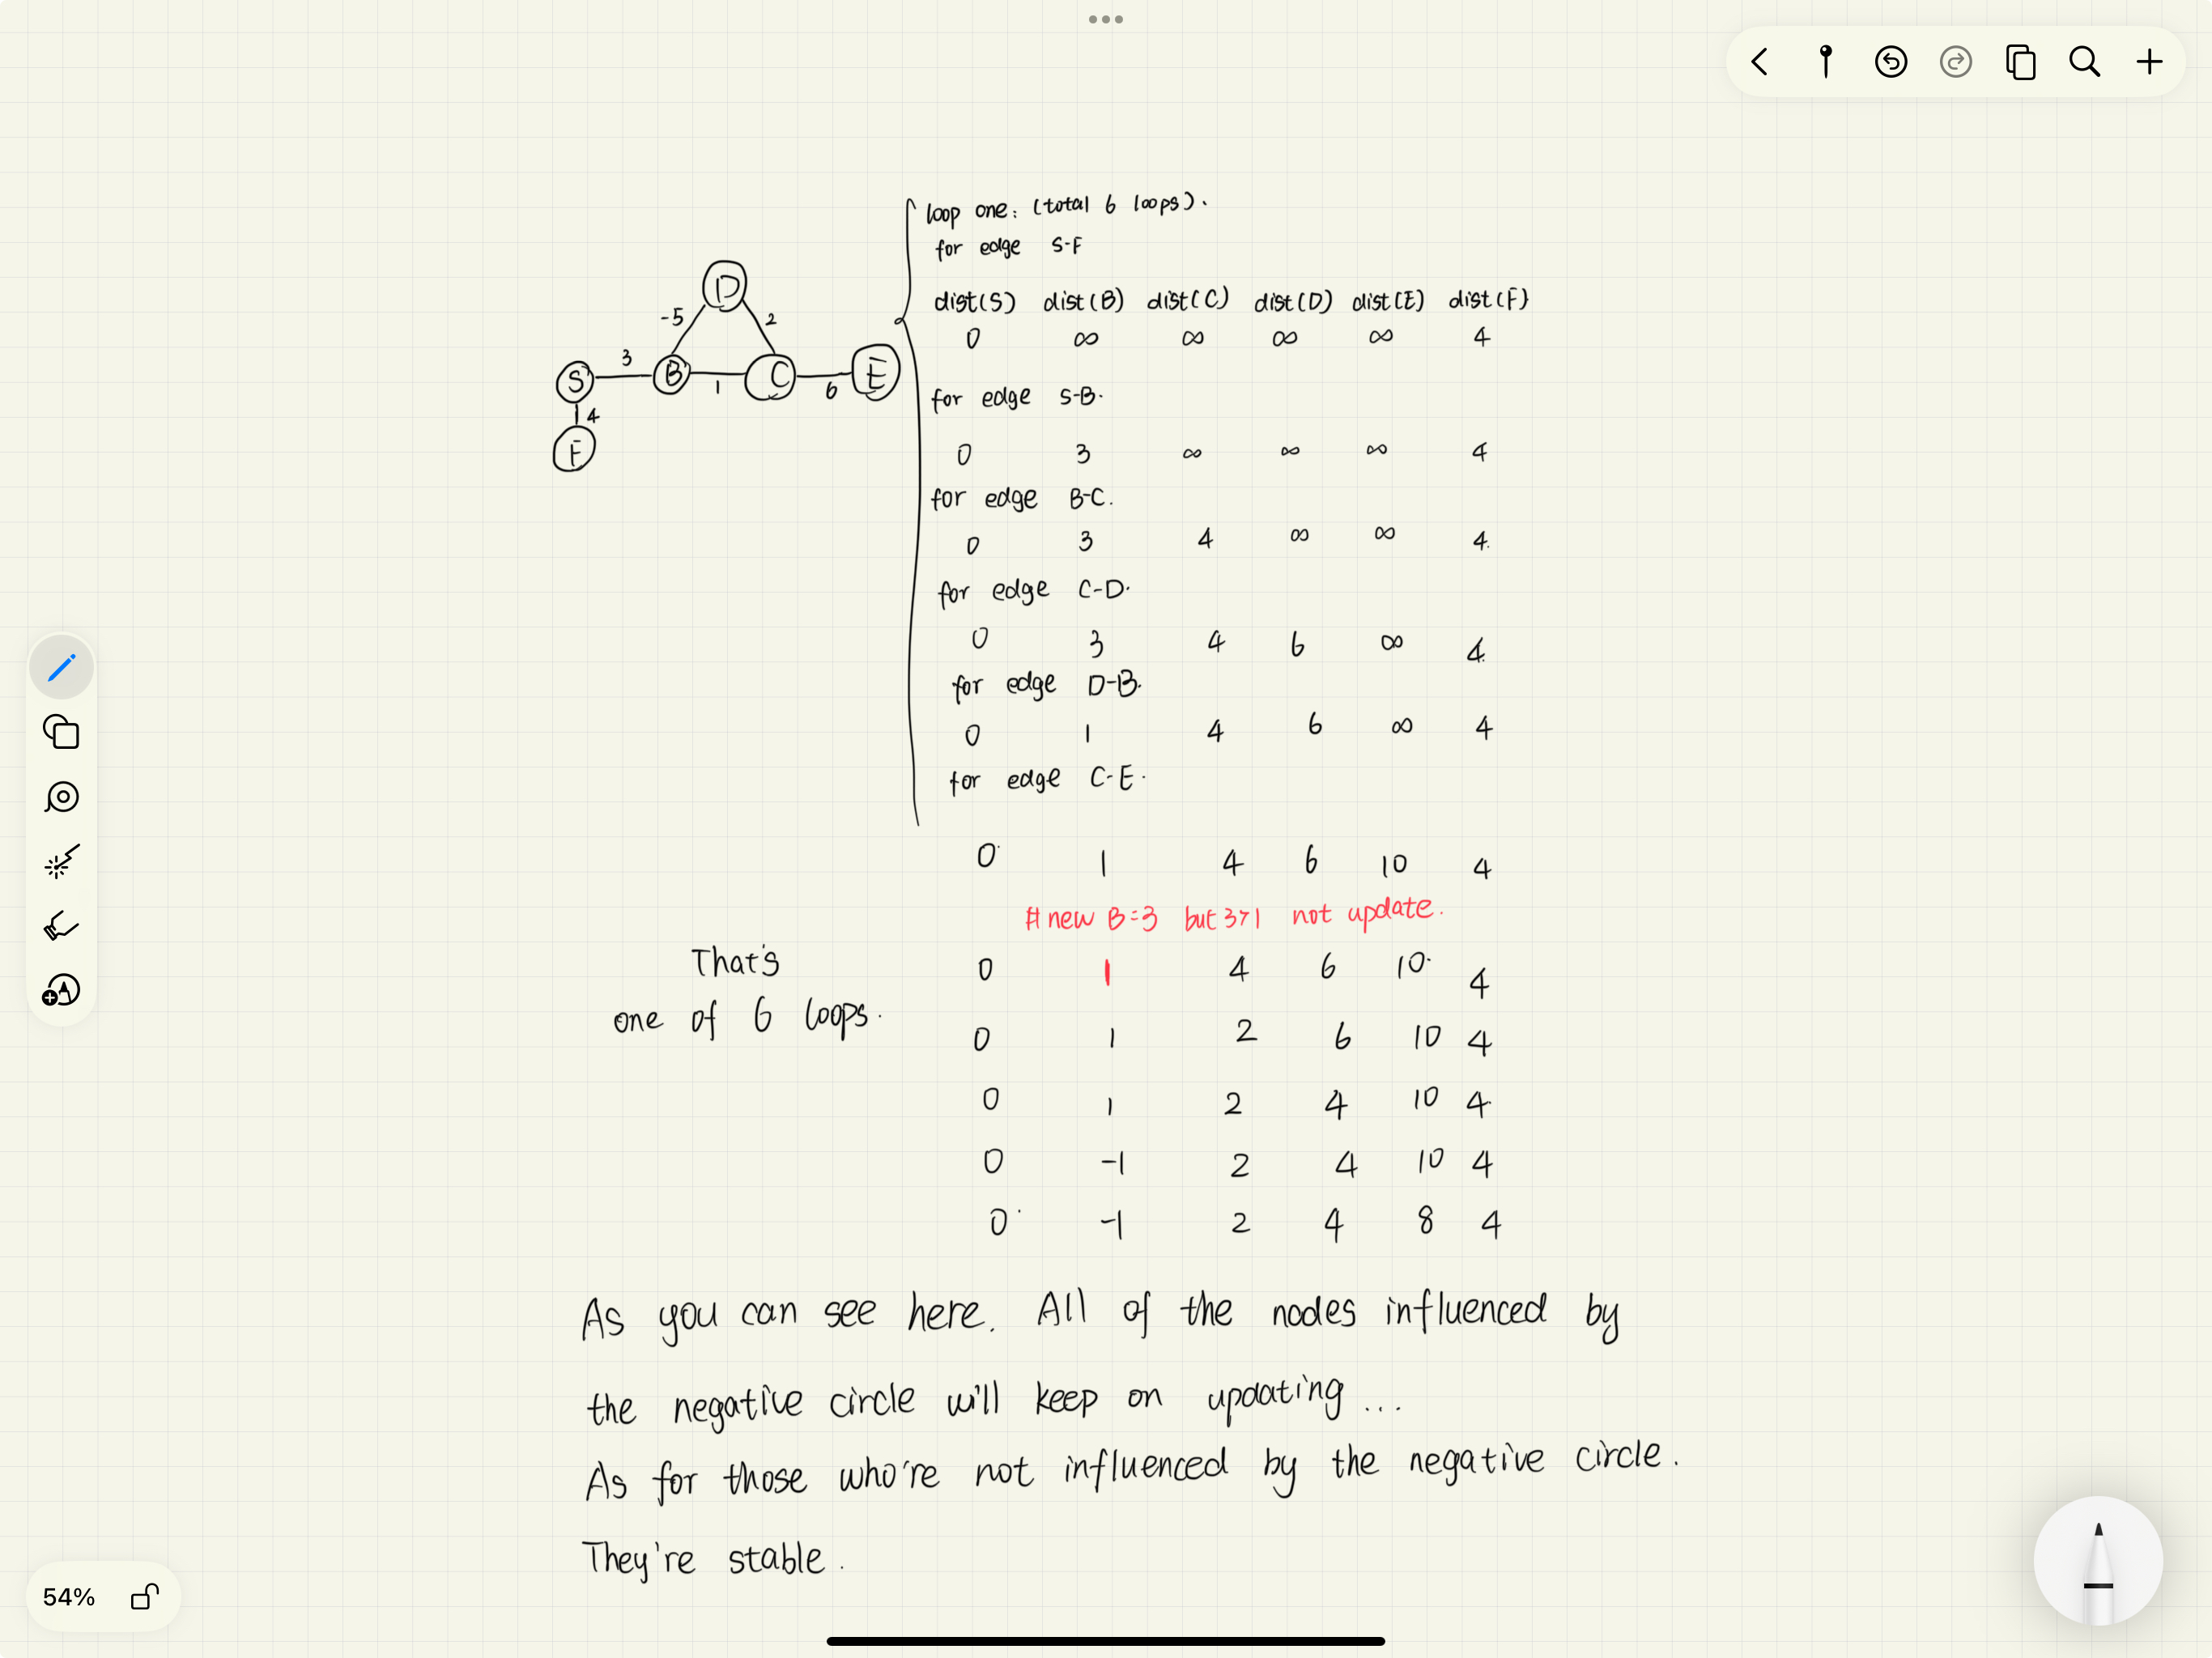 loop one: (total 6 loops).
for edge S-F
dist(S) dist(B) dist(C) dist(D) dist(E) dist(F)
0 ∞ ∞ ∞ ∞ 4
for edge S-B.
0 3 ∞ ∞ ∞ 4
for edge B-C.
0 3 4 ∞ ∞ 4.
for edge C-D.
0 3 4 6 ∞ 4.
for edge D-B.
0 1 4 6 ∞ 4
for edge C-E.
0 1 4 6 10 4
# new B=3 but 3>1 not update.
0 1 4 6 10 4
0 1 2 6 10 4
0 1 2 4 10 4
0 -1 2 4 10 4
0 -1 2 4 8 4
D
-5 2
3
S B C E
1 6
4
F
That's
one of 6 loops.
As you can see here. All of the nodes influenced by
the negative circle will keep on updating...
As for those who're not influenced by the negative circle.
They're stable.
54%